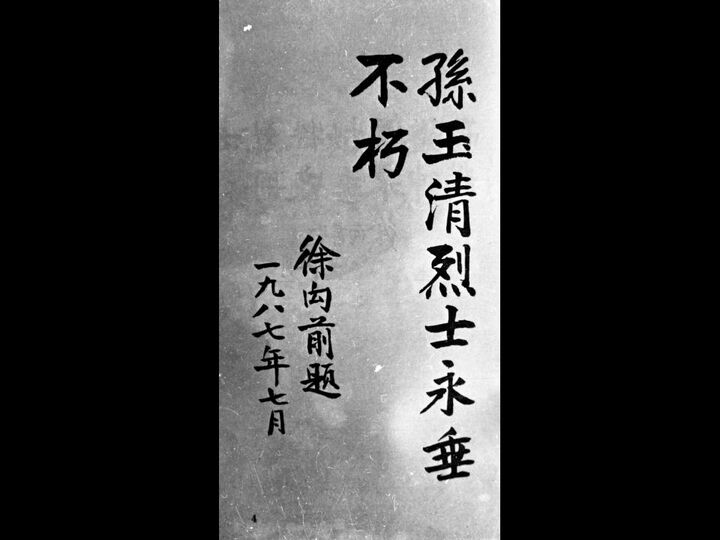 孫玉清烈士永垂
不朽
徐向前题
一九八七年七月